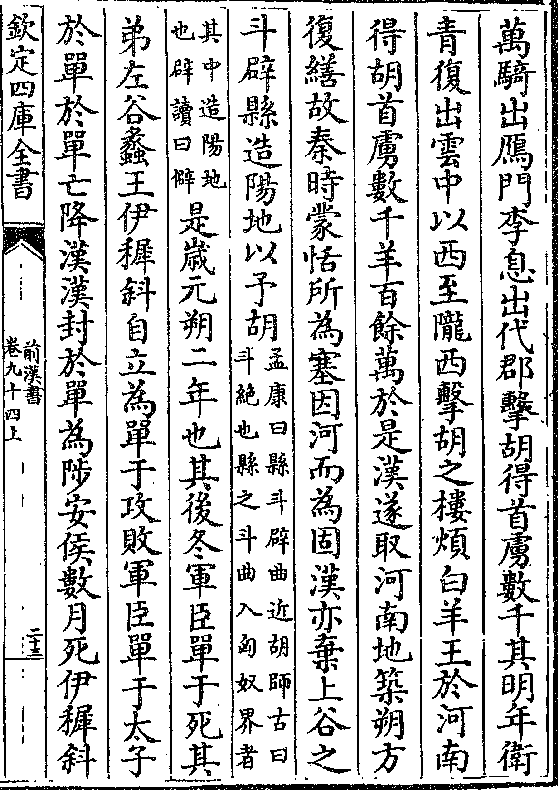 萬騎出鴈門李息出代郡擊胡得首虜數千其明年衛
青復出雲中以西至隴西擊胡之樓煩白羊王於河南
得胡首虜數千羊百餘萬於是漢遂取河南地築朔方
復繕故秦時蒙恬所為塞因河而為固漢亦棄上谷之
斗辟縣造陽地以予胡孟康曰縣斗辟曲近胡師古曰
斗絶也縣之斗曲入匈奴界者
其中造陽地
也辟讀曰僻是嵗元朔二年也其後冬軍臣單于死其
弟左谷蠡王伊穉斜自立為單于攻敗軍臣單于太子
於單於單亡降漢漢封於單為陟安侯數月死伊穉斜
欽定四庫全書
前漢書
卷九十四上
二十三